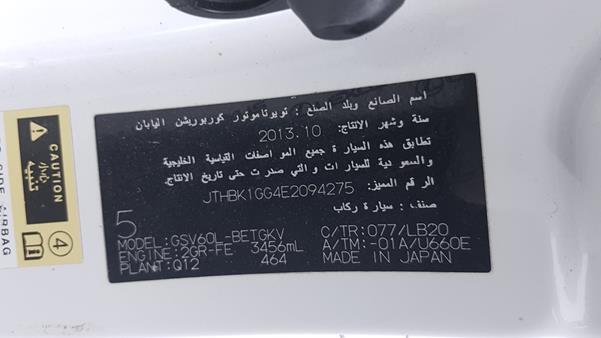 اسم الصانع وبلد الصنع : تويوتا موتور كوربوريشن اليابان
سنة وشهر الانتاج: 2013.10
تطابق هذه السيارة جميع المواصفات القياسية الخليجية
والسعودية للسيارات والتي صدرت حتى تاريخ الانتاج.
الرقم المميز: JTHBK1GG4E2094275
صنف : سيارة ركاب
5
MODEL:GSV60L-BETGKV C/TR:077/LB20
ENGINE:2GR-FE 3456mL A/TM:-01A/U660E
PLANT:Q12 464 MADE IN JAPAN
CAUTION
تنبيه
4
SIDE AIRBAG